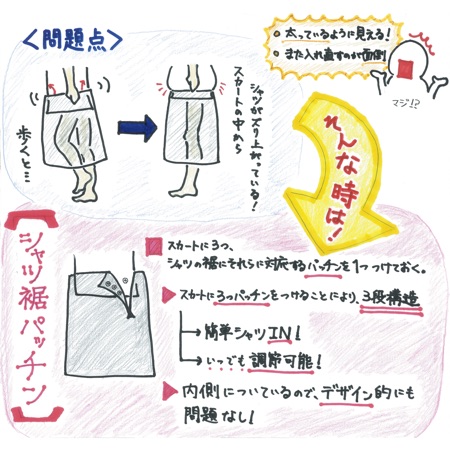 <問題点>
歩くと…
シャツがズリ上がっている!
スカートの中から
太っているように見える!
また入れ直すのが面倒
マジ!?
そんな時は!
【シャツ裾パッチン】
スカートに3つ、
シャツの裾にそれらに対応するパッチンを1つつけておく。
スカートに3つパッチンをつけることにより、3段構造
簡単シャツIN!
いつでも調節可能!
内側についているので、デザイン的にも
問題なし!